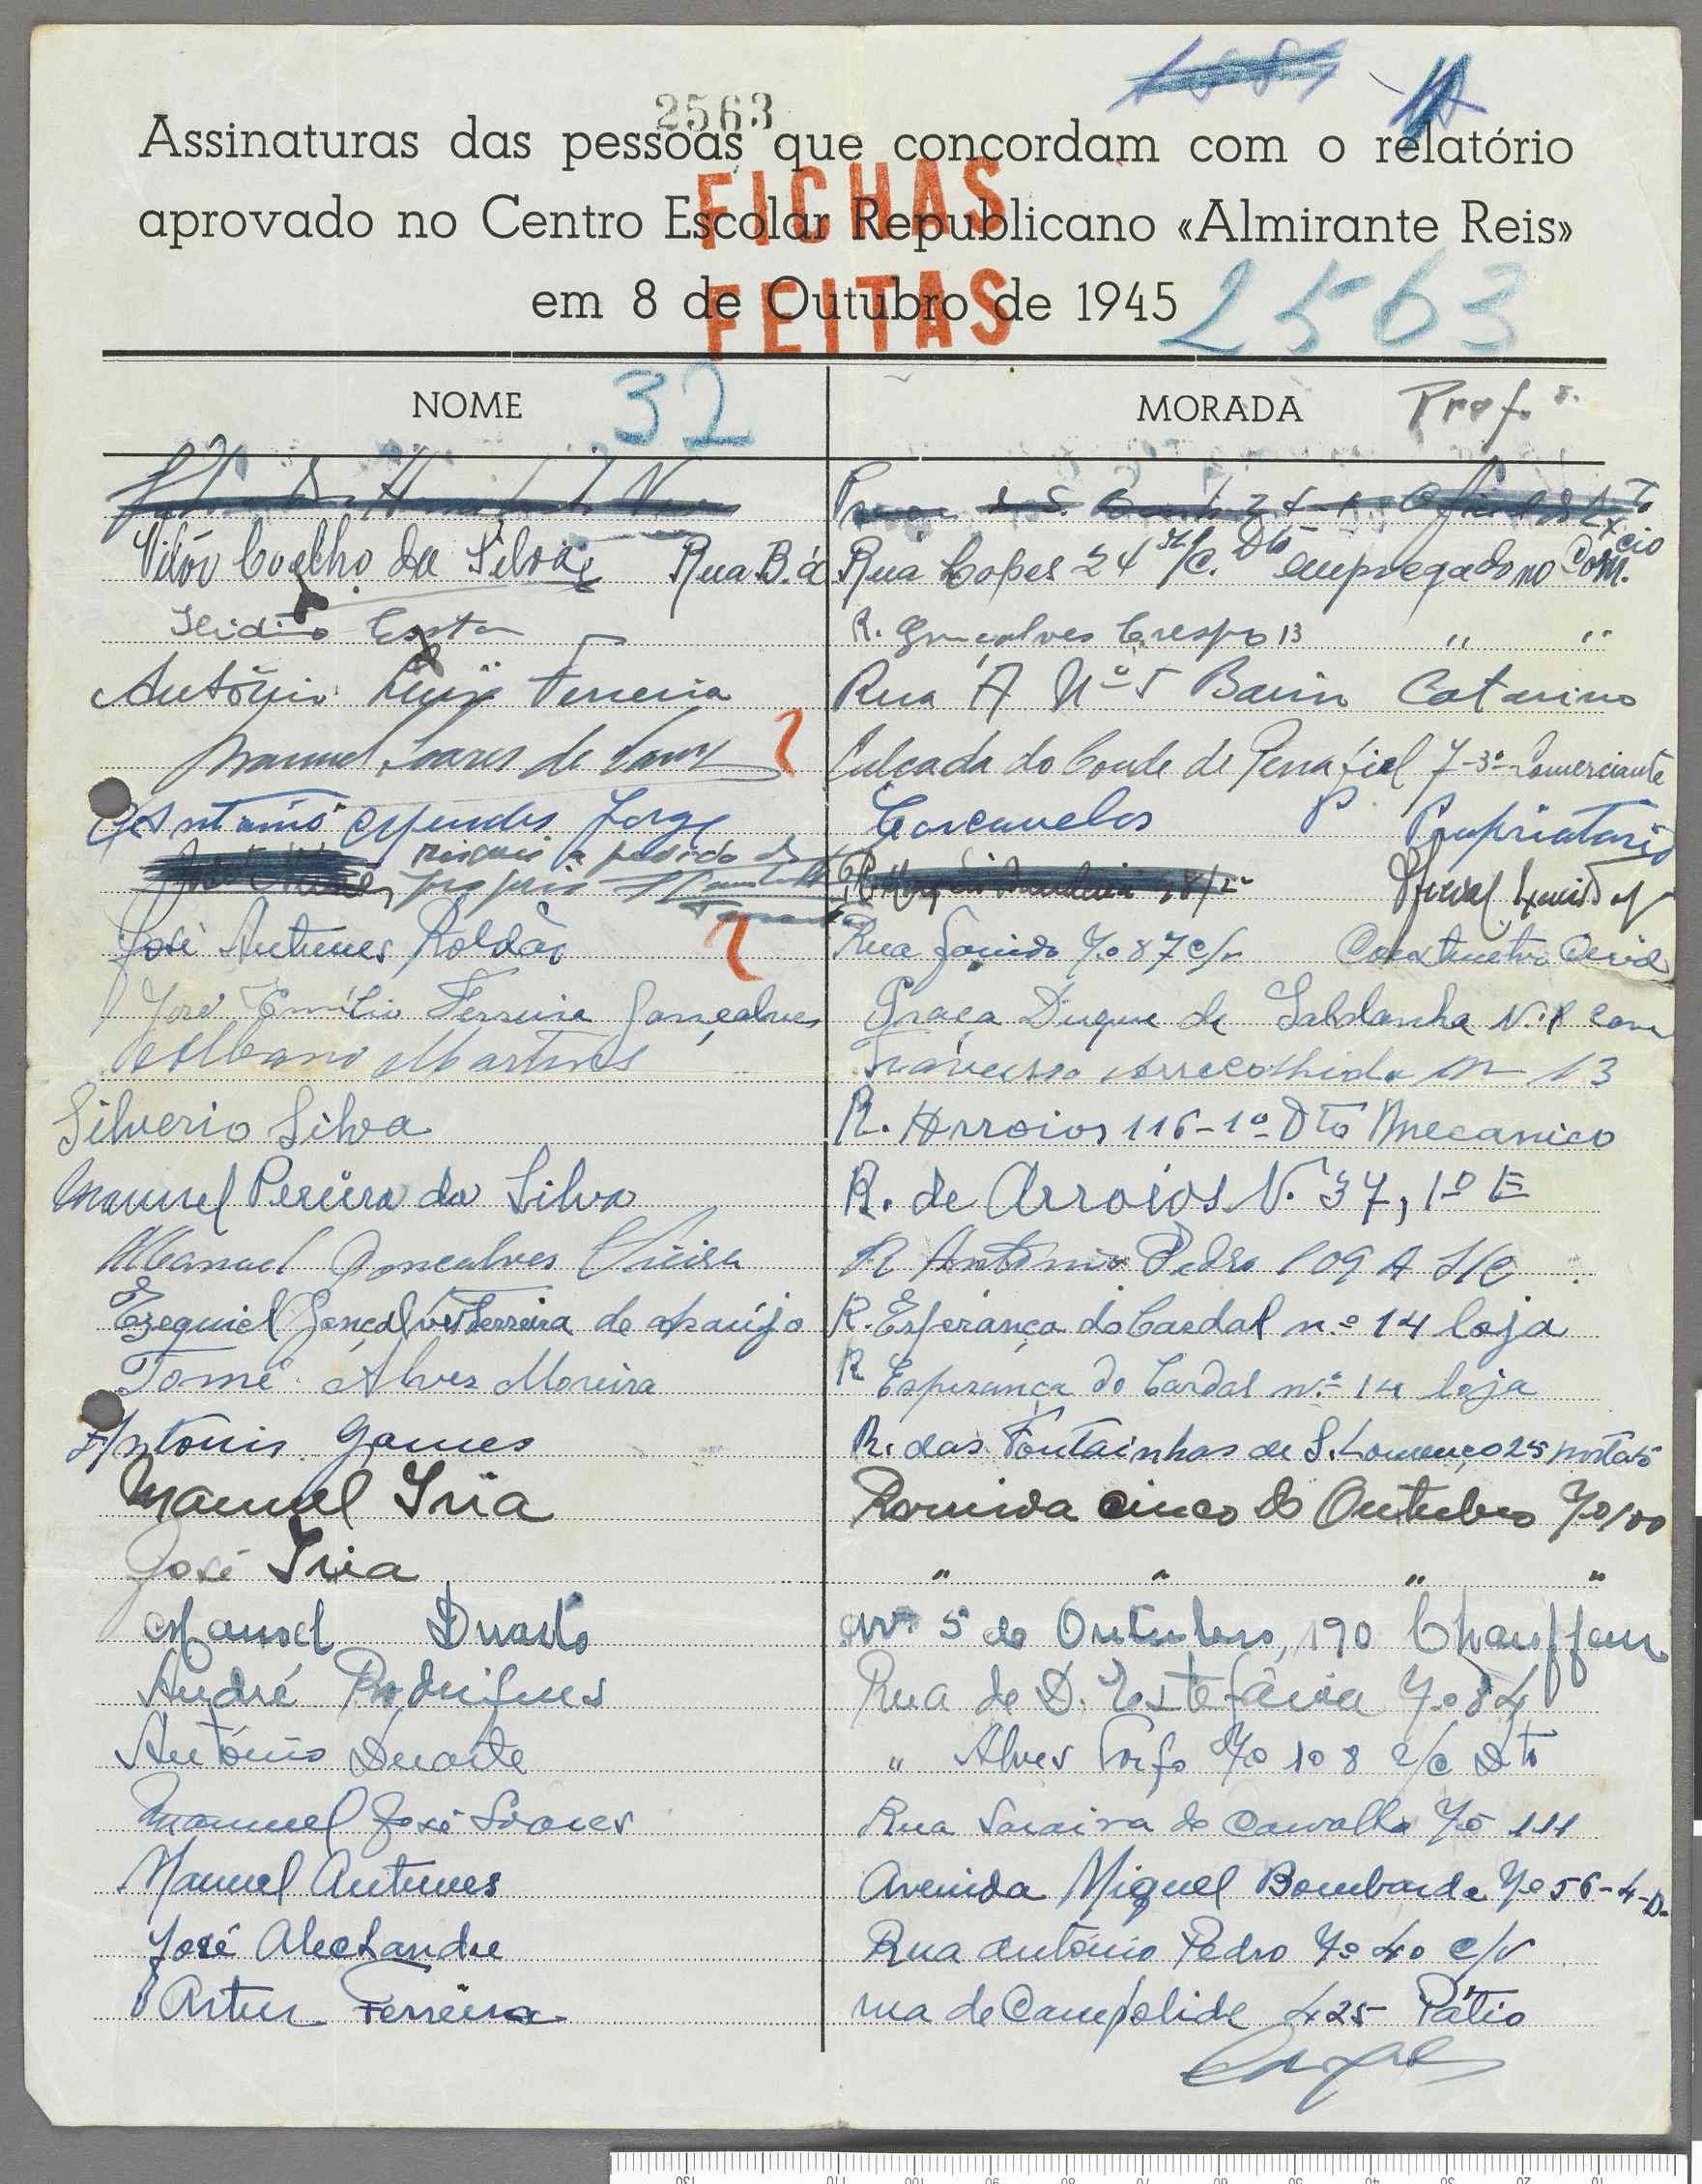 2563
Assinaturas das pessoas que concordam com o relatório
aprovado no Centro Escolar Republicano «Almirante Reis»
em 8 de Outubro de 1945
FICHAS
FEITAS
2563
NOME 32 MORADA Prof.
Vitór Coelho da Silva Rua B. á Rua Lopes 24 r/c. Dto empregado no Com.cio
Ilidio Costa R. Gonçalves Crespo 13 " "
António Luiz Ferreira Rua A Nº 5 Bairro Catarino
Manuel Soares de Calçada do Conde de Penafiel 7-3º Comerciante
António Mendes Jorge Carcavelos P Propriatario
risquei a pedido do
proprio
José Antunes Roldão Rua Garrido Nº 87 c/v Constructor Civil
José Emílio Ferreira Gonçalves Praça Duque de Saldanha N. 1 cave
Albano Martins Travessa Arrecolhida nº 13
Silverio Silva R. Arroios 116-1º Dto Mecanico
Manuel Pereira da Silva R. de Arroios N. 37, 1º E
Manuel Gonçalves Vieira R António Pedro 109 A S/C
Ezequiel Gonçalves Ferreira de Araújo R. Esperança do Cardal n.º 14 loja
Tomé Alves Moreira R Esperança do Cardal n.º 14 loja
Antonio Gomes R. das Fontainhas de S. Lourenço 25
Manuel Iria cinco do Outubro Nº 100
José Iria " " " "
Manoel Duarte Avª 5 de Outubro, 190 Chauffeur
André Rodrigues Rua de D. Estefânia Nº 84
António Duarte " Alves Torgo Nº 108 r/c Dto
Manuel José Soares Rua Saraiva de Carvalho Nº 111
Manuel Antunes Avenida Miguel Bombarda Nº 56-4-D.
José Alechandre Rua António Pedro Nº 40 c/v
Artur Ferreira rua de Campolide 425 Pátio